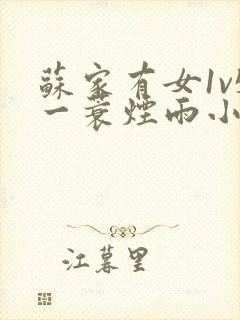 蘇家有女1v
一蓑煙雨小
江暮里